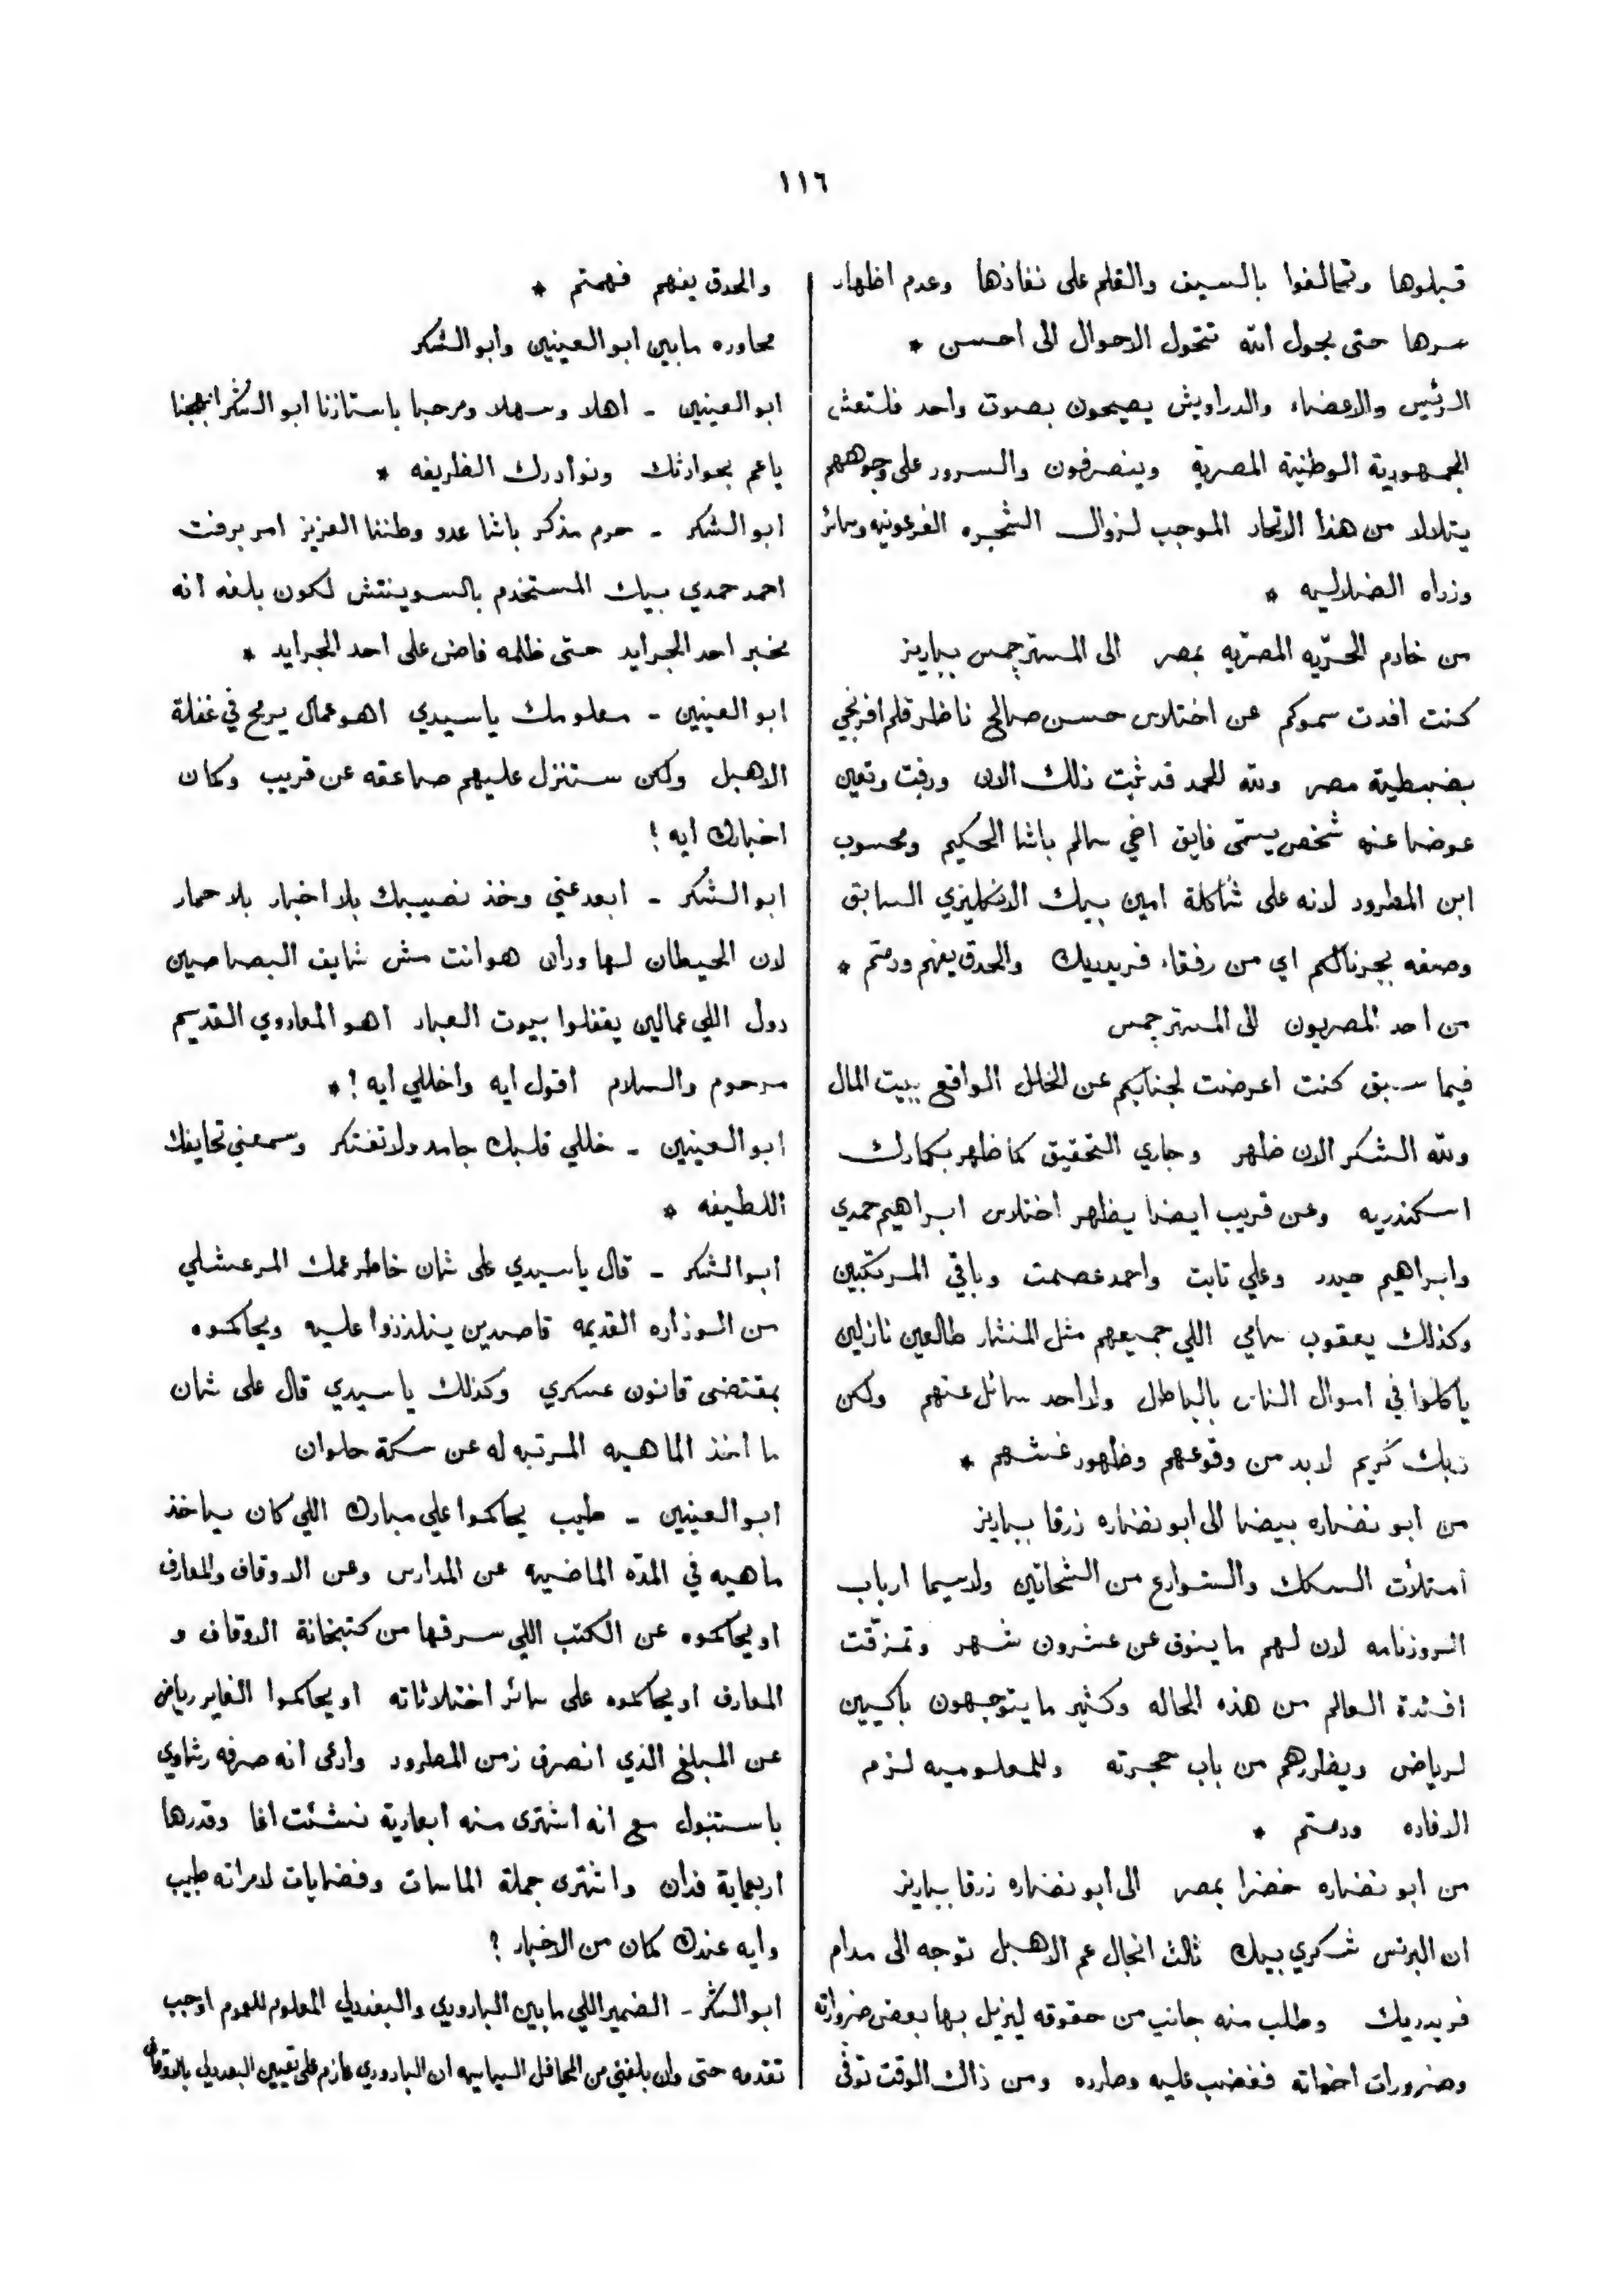 ١١٦
قبلوها وتحالفوا بالسيف والقلم على نفاذها وعدم اظهار
سرها حتى بحول الله تتحول الاحوال الى احسن *
الرئيس والاعضاء والدراويش يصيحون بصوت واحد فلتعش
الجمهورية الوطنية المصرية وينصرفون والسرور على وجوههم
يتلالا من هذا الاتحاد الموجب لزوال الشجره الفرعونيه وسائر
وزراه الضلاليه *
من خادم الحرّيه المصريه بمصر الى المستر جمس بباريز
كنت افدت سموكم عن اختلاس حسن صالح ناظر قلم افرنجي
بضبطية مصر ولله الحمد قد ثبت ذلك الان ورفت وتعين
عوضا عنه شخص يسمّى فايق اخي سالم باشا الحكيم ومحسوب
ابن المطرود لانه على شاكلة امين بيك الانكليزي السابق
وصفه بجرنالكم اي من رفقاء فريدريك والحدق يفهم ودمتم *
من احد المصريون الى المستر جمس
فيما سبق كنت اعرضت لجنابكم عن الخلل الواقع ببيت المال
ولله الشكر الان ظهر وجاري التحقيق كما ظهر بكمارك
اسكندريه وعن قريب ايضا يظهر اختلاس ابراهيم حمدي
وابراهيم حيدر وعلي ثابت واحمد عصمت وباقي المرتكبين
وكذلك يعقوب سامي اللي جميعهم مثل المنشار طالعين نازلين
ياكلوا في اموال الناس بالباطل ولا احد سائل عنهم ولكن
ربك كريم لابد من وقوعهم وظهور غشهم *
من ابو نضاره بيضا الى ابو نضاره زرقا بباريز
امتلأت السكك والشوارع من الشحاتين ولاسيما ارباب
الروزنامه لان لهم ما ينوف عن عشرون شهر وتمزقت
افئدة العالم من هذه الحاله وكثير ما يتوجهون باكيين
لرياض ويطردهم من باب حجرته وللمعلوميه لزم
الافاده ودمتم *
من ابو نضاره خضرا بمصر الى ابو نضاره زرقا بباريز
ان البرنس شكري بيك ثالث انجال عم الاهبل توجه الى مدام
فريدريك وطلب منه جانب من حقوقه ليزيل بها بعض ضروراته
وضرورات اخواته فغضب عليه وطرده ومن ذاك الوقت توفى
والحدق يفهم فهمتم *
محاوره مابين ابو العينين وابو الشكر
ابو العينين - اهلا وسهلا ومرحبا باستاذنا ابو الشكر ابهجنا
ياعم بحوادثك ونوادرك الظريفه *
ابو الشكر - حرم مذكر باشا عدو وطننا العزيز امر برفت
احمد حمدي بيك المستخدم بالسوينتش لكون بلغه انه
مخبر احد الجرايد حتى ظلمه فاض على احد الجرايد *
ابو العينين - معلومك ياسيدي اهو عمال يرمح في غفلة
الاهبل ولكن ستنزل عليهم صاعقه عن قريب وكمان
اخبارك ايه !
ابو الشكر - ابعد عني وخذ نصيبك بلا اخبار بلا حمار
لان الحيطان لها ودان هو انت مش شايف البصاصين
دول اللي عمالين يقفلوا بيوت العباد اهو المعاروي القديم
مرحوم والسلام اقول ايه واخللي ايه ! *
ابو العينين - خللي قلبك جامد ولا تفتكر وسمعني تحايفك
اللطيفه *
ابو الشكر - قال ياسيدي على شان خاطر عمك المرعشلي
من الوزاره القديمه قاصدين يتلذذوا عليه ويحاكموه
بمقتضى قانون عسكري وكذلك ياسيدي قال على شان
ما اخذ الماهيه المرتبه له عن سكة حلوان
ابو العينين - طيب يحاكموا علي مبارك اللي كان بياخذ
ماهيه في المدّه الماضيه عن المدارس وعن الاوقاف والمعارف
او يحاكموه عن الكتب اللي سرقها من كتبخانة الاوقاف و
المعارف او يحاكموه على سائر اختلاساته او يحاكموا الغاير رياض
عن المبلغ الذي انصرف زمن المطرود وادعى انه صرفه رشاوي
باستنبول مع انه اشترى منه ابعادية نشئت اغا وقدرها
اربعماية فدان واشترى جملة الماسات وفضيايات لامراته طيب
وايه عندك كمان من الاخبار ؟
ابو الشكر - الضمير اللي مابين البارودي والبغدلي المعلوم للعموم اوجب
تقدمه حتى وان بلغني من المحافل السياسيه ان البارودي عازم على تعيين البغدلي بالاوقاف